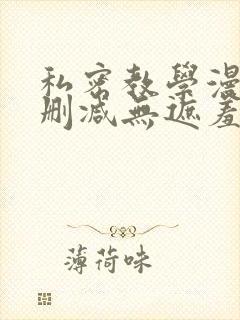 私密教學漫
刪減無遮羞
薄荷味